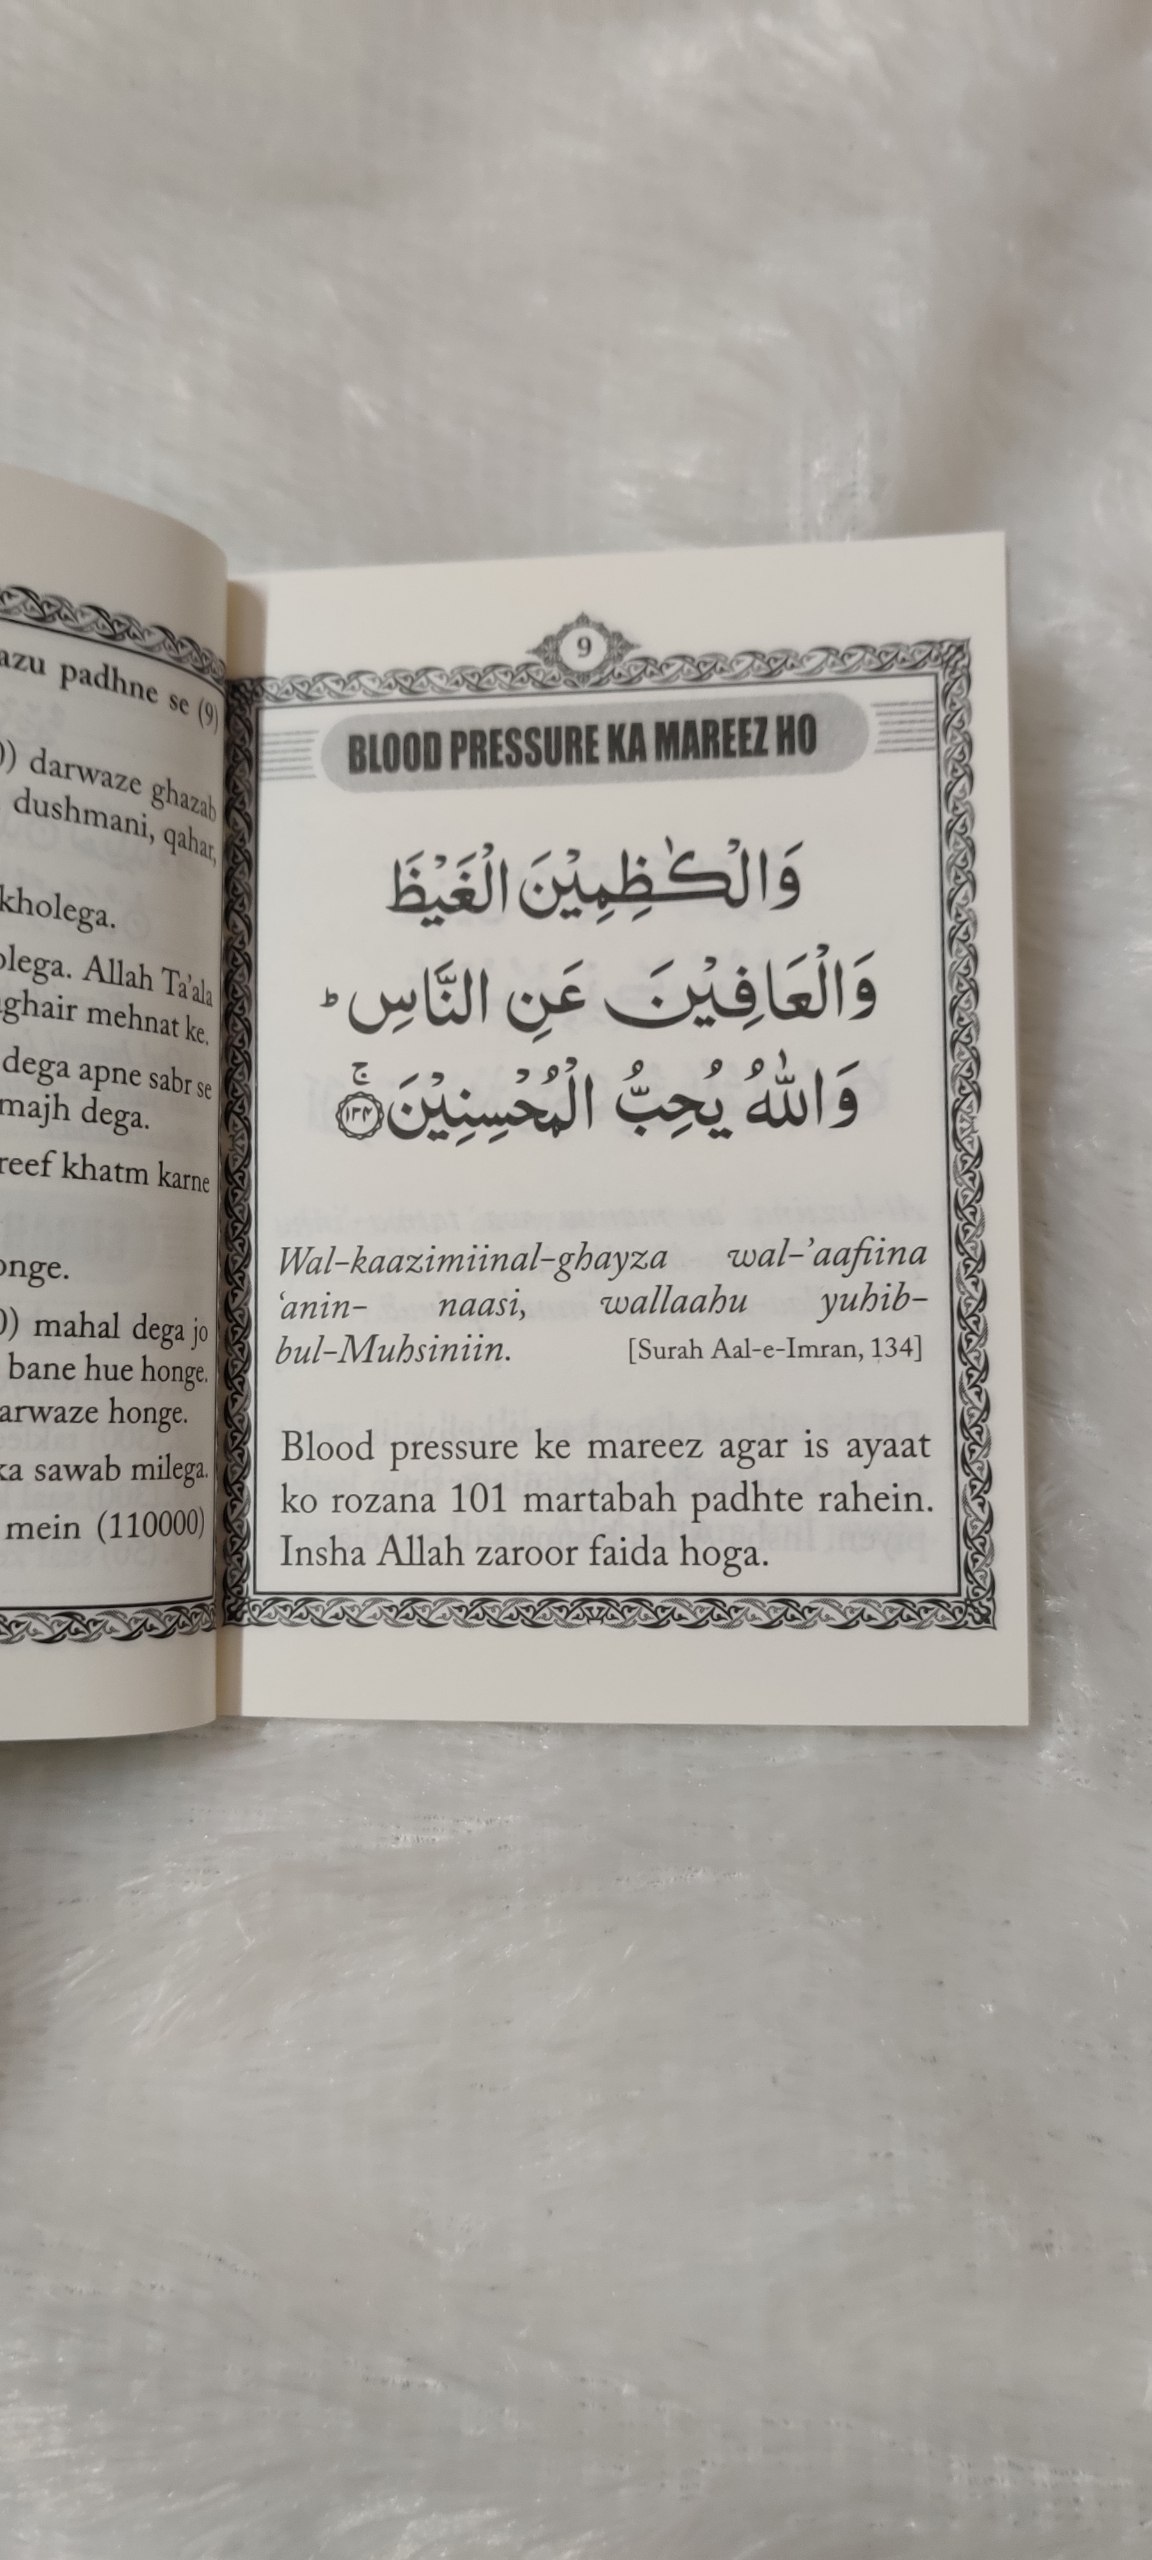 azu padhne se (9)
0) darwaze ghazab
dushmani, qahar,
kholega.
olega. Allah Ta'ala
ghair mehnat ke.
dega apne sabr se
majh dega.
reef khatm karne
onge.
0) mahal dega jo
bane hue honge.
arwaze honge.
ka sawab milega.
mein (110000)
9
BLOOD PRESSURE KA MAREEZ HO
وَالْكٰظِمِيْنَ الْغَيْظَ
وَالْعَافِيْنَ عَنِ النَّاسِ ؕ
وَاللّٰهُ يُحِبُّ الْمُحْسِنِيْنَ ۚ ١٣٤
Wal-kaazimiinal-ghayza wal-'aafiina
'anin- naasi, wallaahu yuhib-
bul-Muhsiniin. [Surah Aal-e-Imran, 134]
Blood pressure ke mareez agar is ayaat
ko rozana 101 martabah padhte rahein.
Insha Allah zaroor faida hoga.